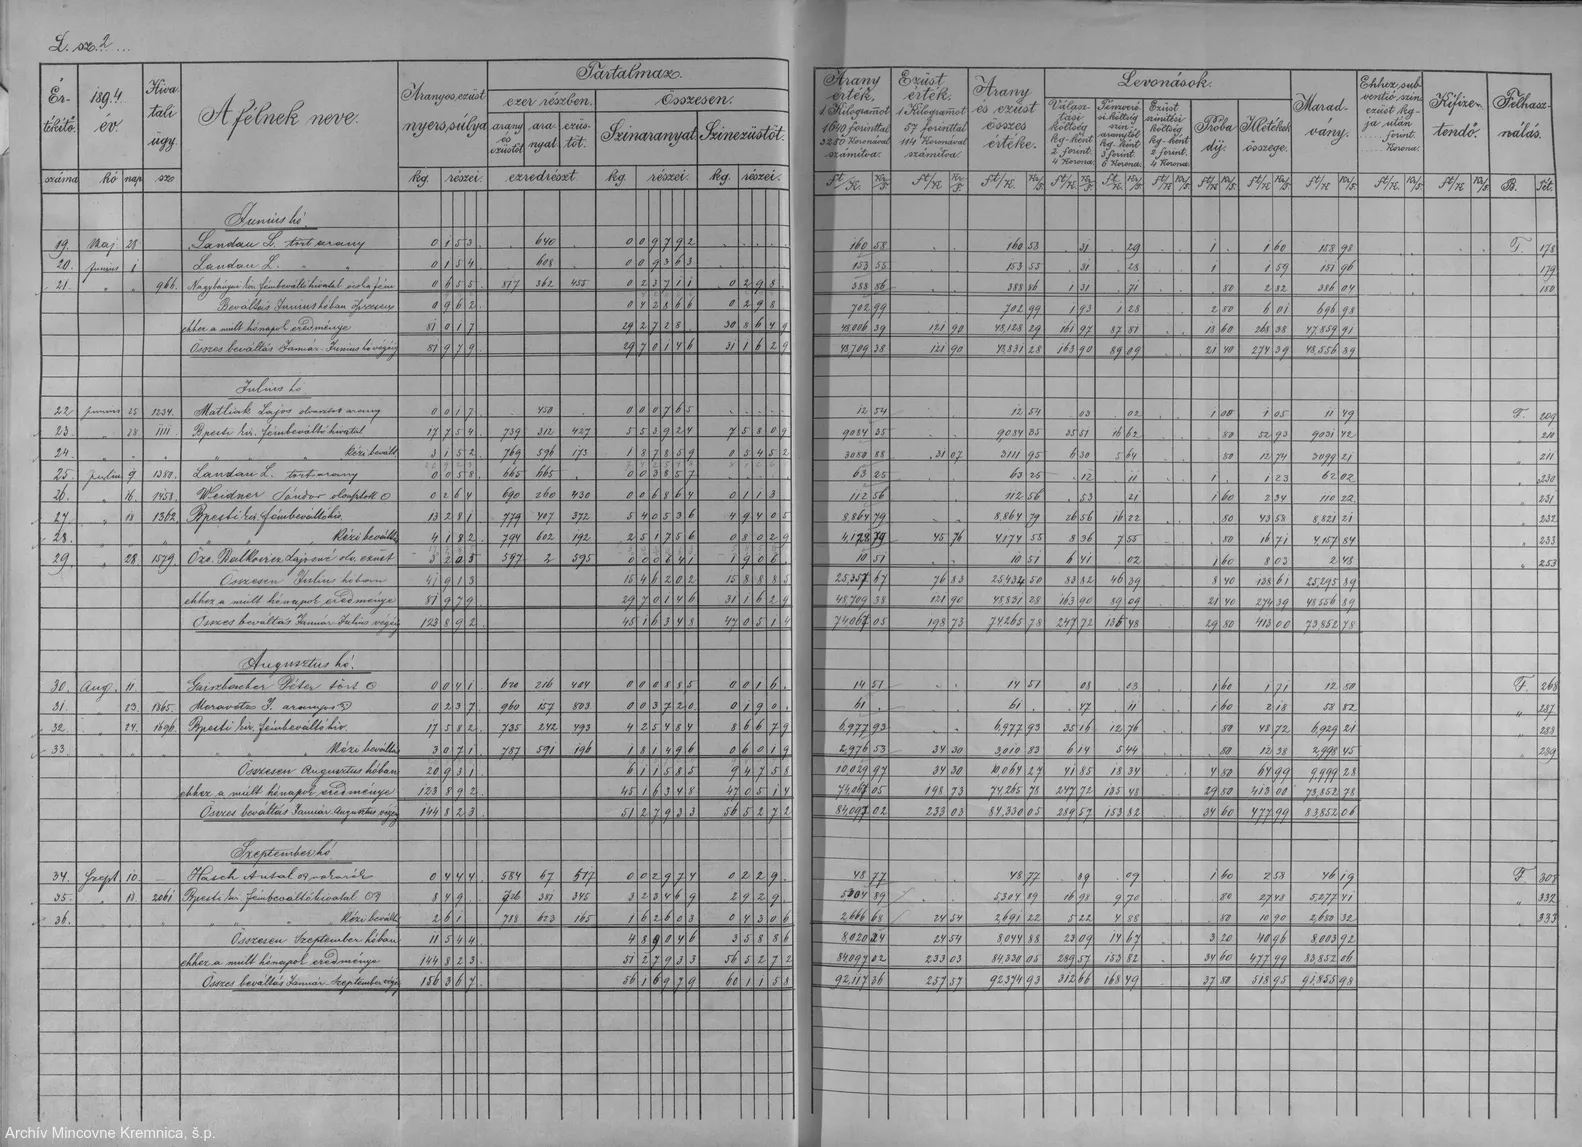 L. sz. 2
Ér-
tékítő.
száma
1894
év.
hó nap
Hiva-
tali
ügy.
szo
A félnek neve.
Aranyos, ezüst
nyers, súlya
kg. részei.
Tartalmaz.
ezer részben.
arany és ezüstöt.
ara-
nyat.
ezüs-
töt.
ezredrészt
Összesen.
Színaranyat. Színezüstöt.
kg. részei. kg. részei.
Arany
érték,
1 Kilogramot
1640 forinttal
3280 Koronával
számítva.
Ezüst
érték.
1 Kilogramot
57 forinttal
114 Koronával
számítva.
Arany
és ezüst
összes
értéke.
Levonások.
Válasz-
tási
költség
kg-ként
2 forint
4 Korona.
3 forint
6 Korona.
Ezüst
költség
kg-ként
2 forint.
4 Korona
Próba
díj.
Illetékek
összege.
Marad-
vány.
forint.
Korona.
Kifizen-
tendő.
Felhasz-
nálás.
B. Tét.
Junius hó
19. Maj 28 Landau L. tört arany 0 153 640 0 09792 160 58 31 29 1 1 60 158 98 F. 178
20. Junius 1 Landau L. " " 0 154 608 0 09363 153 55 153 55 31 28 1 1 59 179
21. " " 966. 0 655 817 362 455 0 23711 0 298 388 86 388 86 1 31 71 80 2 82 386 04 " 180
Beváltás Junius hóban összesen 0 962 0 42866 0 298 702 99 702 99 1 93 1 28 2 80 6 01 696 98
ehhez a mult hónapok eredménye 81 017 29 2728 30 8649 48,006 39 121 90 48,128 29 161 97 87 81 18 60 268 38 47,859 91
Összes beváltás Január-Junius hó végéig 81 979 29 70146 31 1629 48,709 38 121 90 48,831 28 163 90 89 09 21 40 274 39 48,556 89
Julius hó
22 Junius 25 1234. Matliak Lajos olvasztott arany 0 017 450 0 00765 12 54 12 54 03 02 1 00 1 05 11 49 F. 209
23. " 28 1111 Bpesti kir. fémbeváltó hivatal 17 754 739 312 427 5 53924 7 5809 9084 35 9084 35 35 51 16 62 80 52 93 9031 42 " 210
24. " " " Kézi bevált 3 152 769 596 173 1 87859 0 5452 3080 88 31 07 3111 95 6 30 5 64 80 12 74 3099 21 " 211
25. Julius 9. 1380. Landau L. tört arany 0 058 665 665 0 03857 63 25 63 25 12 11 1 1 23 62 02 " 230
26. " 16. 1458. Weidner Sándor 0 264 690 260 430 0 06864 0 113 112 56 112 56 53 21 1 60 2 34 110 22 " 231
27 " 18 1362. Bpesti kir. fémbeváltó hiv 13 281 779 407 372 5 40536 4 9405 8,864 79 8,864 79 26 56 16 22 80 43 58 8,821 21 " 232
28. " " " Kézi beváltás 4 182 794 602 192 2 51756 0 8029 4,128 79 45 76 4,174 55 8 36 7 55 80 16 71 4,157 84 " 233
29 " 28 1579. Özv. Balkovicz Lajosné olv. ezüst 3 203 597 2 595 0 00641 1 906 10 51 10 51 6 41 02 1 60 8 03 2 48 " 253
Összesen Julius hóban 41 913 15 46202 15 8885 25,357 67 76 83 25,434 50 83 82 46 39 8 40 138 61 25,295 89
ehhez a mult hónapok eredménye 81 979 29 70146 31 1629 48,709 38 121 90 48,831 28 163 90 89 09 21 40 274 39 48,556 89
Összes beváltás Január-Julius végéig 123 892 45 16348 47 0514 74,067 05 198 73 74,265 78 247 72 135 48 29 80 413 00 73,852 78
Augusztus hó.
30. Aug. 11. Péter tört 0 041 620 216 404 0 00885 0 016 14 51 14 51 08 03 1 60 1 71 12 80 F. 268
31. " 23. 1365. Moravetz J. aranyos 0 237 960 157 803 0 03720 0 190 61 61 47 11 1 60 2 18 58 82 " 287
32. " 24. 1696. Bpesti kir. fémbeváltó hiv. 17 582 735 242 493 4 25484 8 6679 6,977 93 6,977 93 35 16 12 76 80 48 72 6,929 21 " 288
33. " " " Kézi beváltás 3 071 787 591 196 1 81496 0 6019 2,976 53 34 30 3,010 83 6 14 5 44 80 12 38 2,998 45 " 289
Összesen Augusztus hóban 20 931 6 11585 9 4758 10,029 97 34 30 10,064 27 41 85 18 34 4 80 64 99 9,999 28
ehhez a mult hónapok eredménye 123 892 45 16348 47 0514 74,067 05 198 73 74,265 78 247 72 135 48 29 80 413 00 73,852 78
Összes beváltás Január-Augusztus végéig 144 823 51 27933 56 5272 84,097 02 233 03 84,330 05 289 57 153 82 34 60 477 99 83,852 06
Szeptember hó
34. Szept. 10. — Hasch Antal 0 444 584 67 517 0 02974 0 229 48 77 48 77 89 09 1 60 2 58 46 19 F 308
35. " 13. 2061 Bpesti kir. fémbeváltó hivatal 8 49 726 381 345 3 23469 2 929 5304 89 5,304 89 16 98 9 70 80 27 48 5,277 41 " 332
36. " " " Kézi bevált 2 61 788 623 165 1 62603 0 4306 2,666 68 24 54 2,691 22 5 22 4 88 80 10 90 2,680 32 " 333
Összesen Szeptember hóban 11 544 4 89046 3 5886 8,020 34 24 54 8,044 88 23 09 14 67 3 20 40 96 8,003 92
ehhez a mult hónapok eredménye 144 823 51 27933 56 5272 84,097 02 233 03 84,330 05 289 57 153 82 34 60 477 99 83,852 06
Összes beváltás Január-Szeptember végéig 156 367 56 16979 60 1158 92,117 36 257 57 92,374 93 312 66 168 49 37 80 518 95 91,855 98
Archív Mincovne Kremnica, š.p.